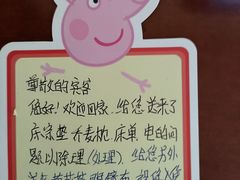 尊敬的宾客
您好！欢迎回家，给您送来了
床凉垫 荞麦枕 床单，电的问
题以除理（处理），给您另外